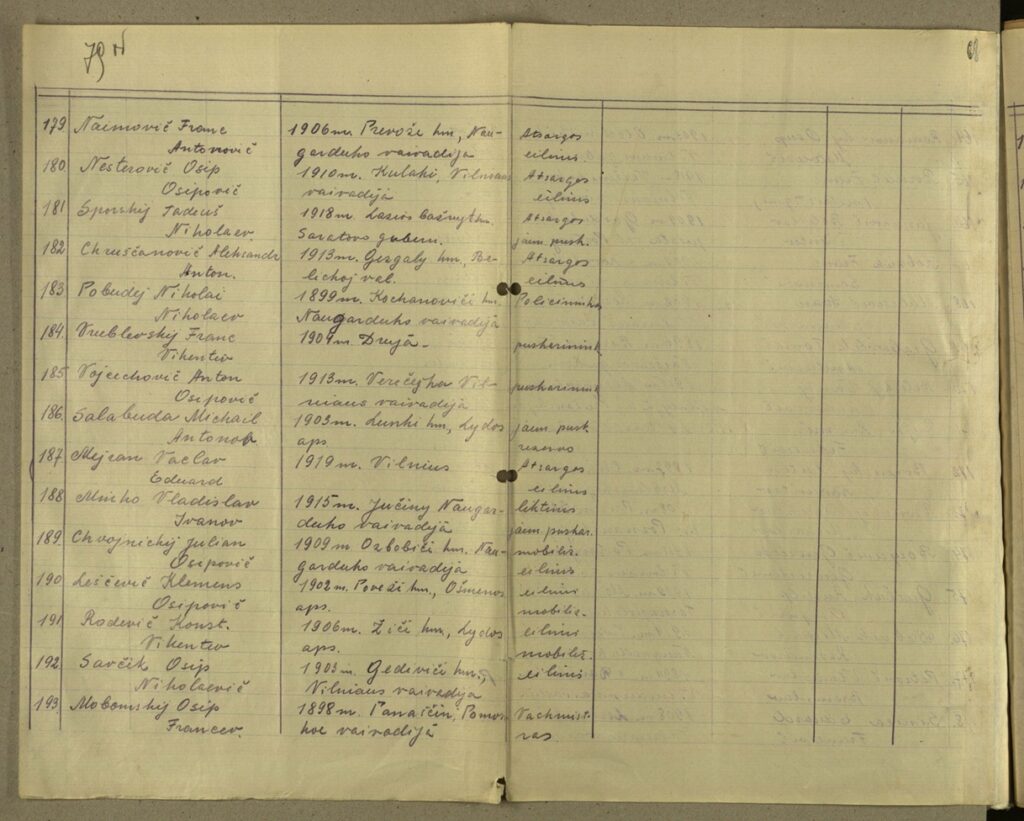 79
68
179 Naimovič Franc 1906 m. Prevože km., Nau- Atsargos
Antonovič garduko vaivadija eilinis
180. Nesterovič Osip 1910 m. Kulaki, Vilniaus Atsargos
Osipovič vaivadija eilinis
181 Sporskij Taduš 1918 m. Atsargos
Nikolaev. Saratovo gubern. jaun. pusk.
182. Chruščanovič Aleksandr 1913 m. Gezgaly km., Be- Atsargos
Anton. lickoj val. eilinis
183. Pobudej Nikolai 1899 m. Kochanoviči km. Policininkas
Nikolaev Naugarduko vaivadija
184. Vrublevskij Franc 1909 m. Druja- puskarinink
Vikentev
185 Vojcechovič Anton 1913 m. Verečejka Vil- puskarinink
Osipovič niaus vaivadija
186. Salabuda Michail 1903 m. Lunki km., Lydos jaun. pusk.
Antonov aps rezervo
187 Mejran Vaclav 1919 m. Vilnius Atsargos
Eduard eilinis
188 Micko Vladislav 1915 m. Jučiny Naugar- liktinis
Ivanov duko vaivadija jaun. puskar.
189. Chvojnickij Julian 1909 m. Ozbobiči km. Nau- mobiliz.
Osipovič garduko vaivadija eilinis
190 Leščevič Klemens 1902 m. Poveži km., Ošmenos eilinis
Osipovič aps. mobiliz.
191 Rodevič Konst. 1906 m. Žiči km., Lydos eilinis
Vikentev aps. mobiliz.
192. Savčik Osip 1903 m. Gedeviči km., eilinis
Nikolaevič Vilniaus vaivadija
193. Mokomskij Osip 1898 m. Panaičin, Pomos- Vachmist-
Francev. koe vaivadija ras.